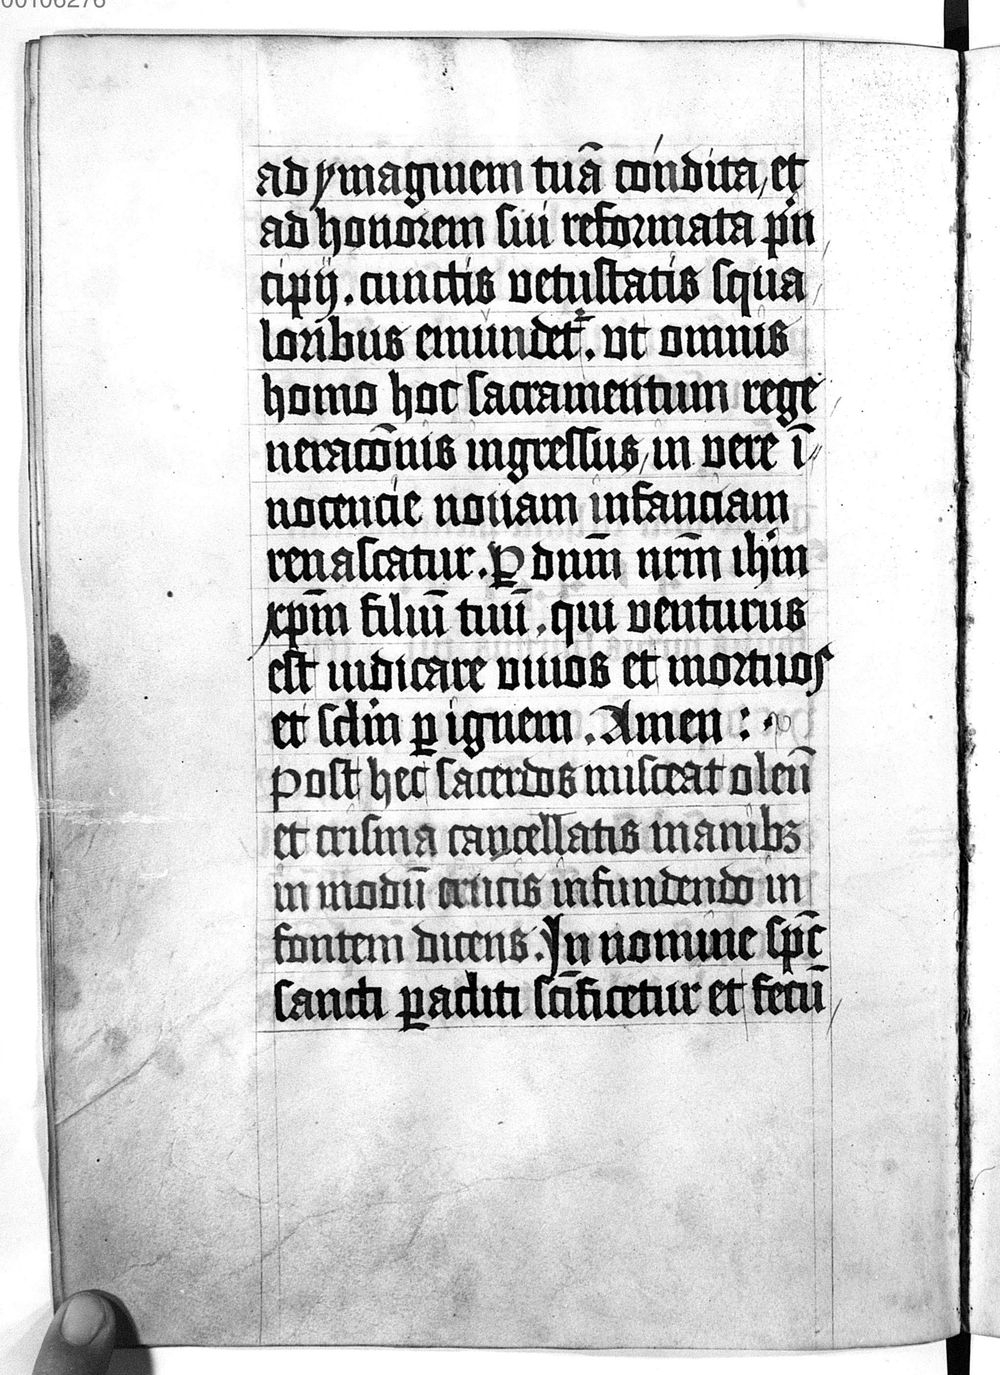 00106276
ad ymaginem tuā condita, et
ad honorem sui reformata prin
cipij. cunctis vetustatis squa
loribus emundet᷑. vt omnis
homo hoc sacramentum rege
neracōnis ingressus, in vere ī
nocencie nouam infanciam
renascatur. Ꝑ dnm̄ nrm̄ ihm̄
xpm̄ filiū tuū, qui venturus
est iudicare viuos et mortuos
et sclm̄ ꝑ ignem. Amen :
Post hec sacerdos misceat oleū
et crisma cancellatis manibꝫ
in modū crucis infundendo in
fontem dicens. In nomine spc̄
sancti ꝑacliti scīficetur et fecū